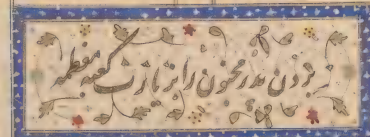 بردن پدر مجنون را بزیارت کعبه معظمه